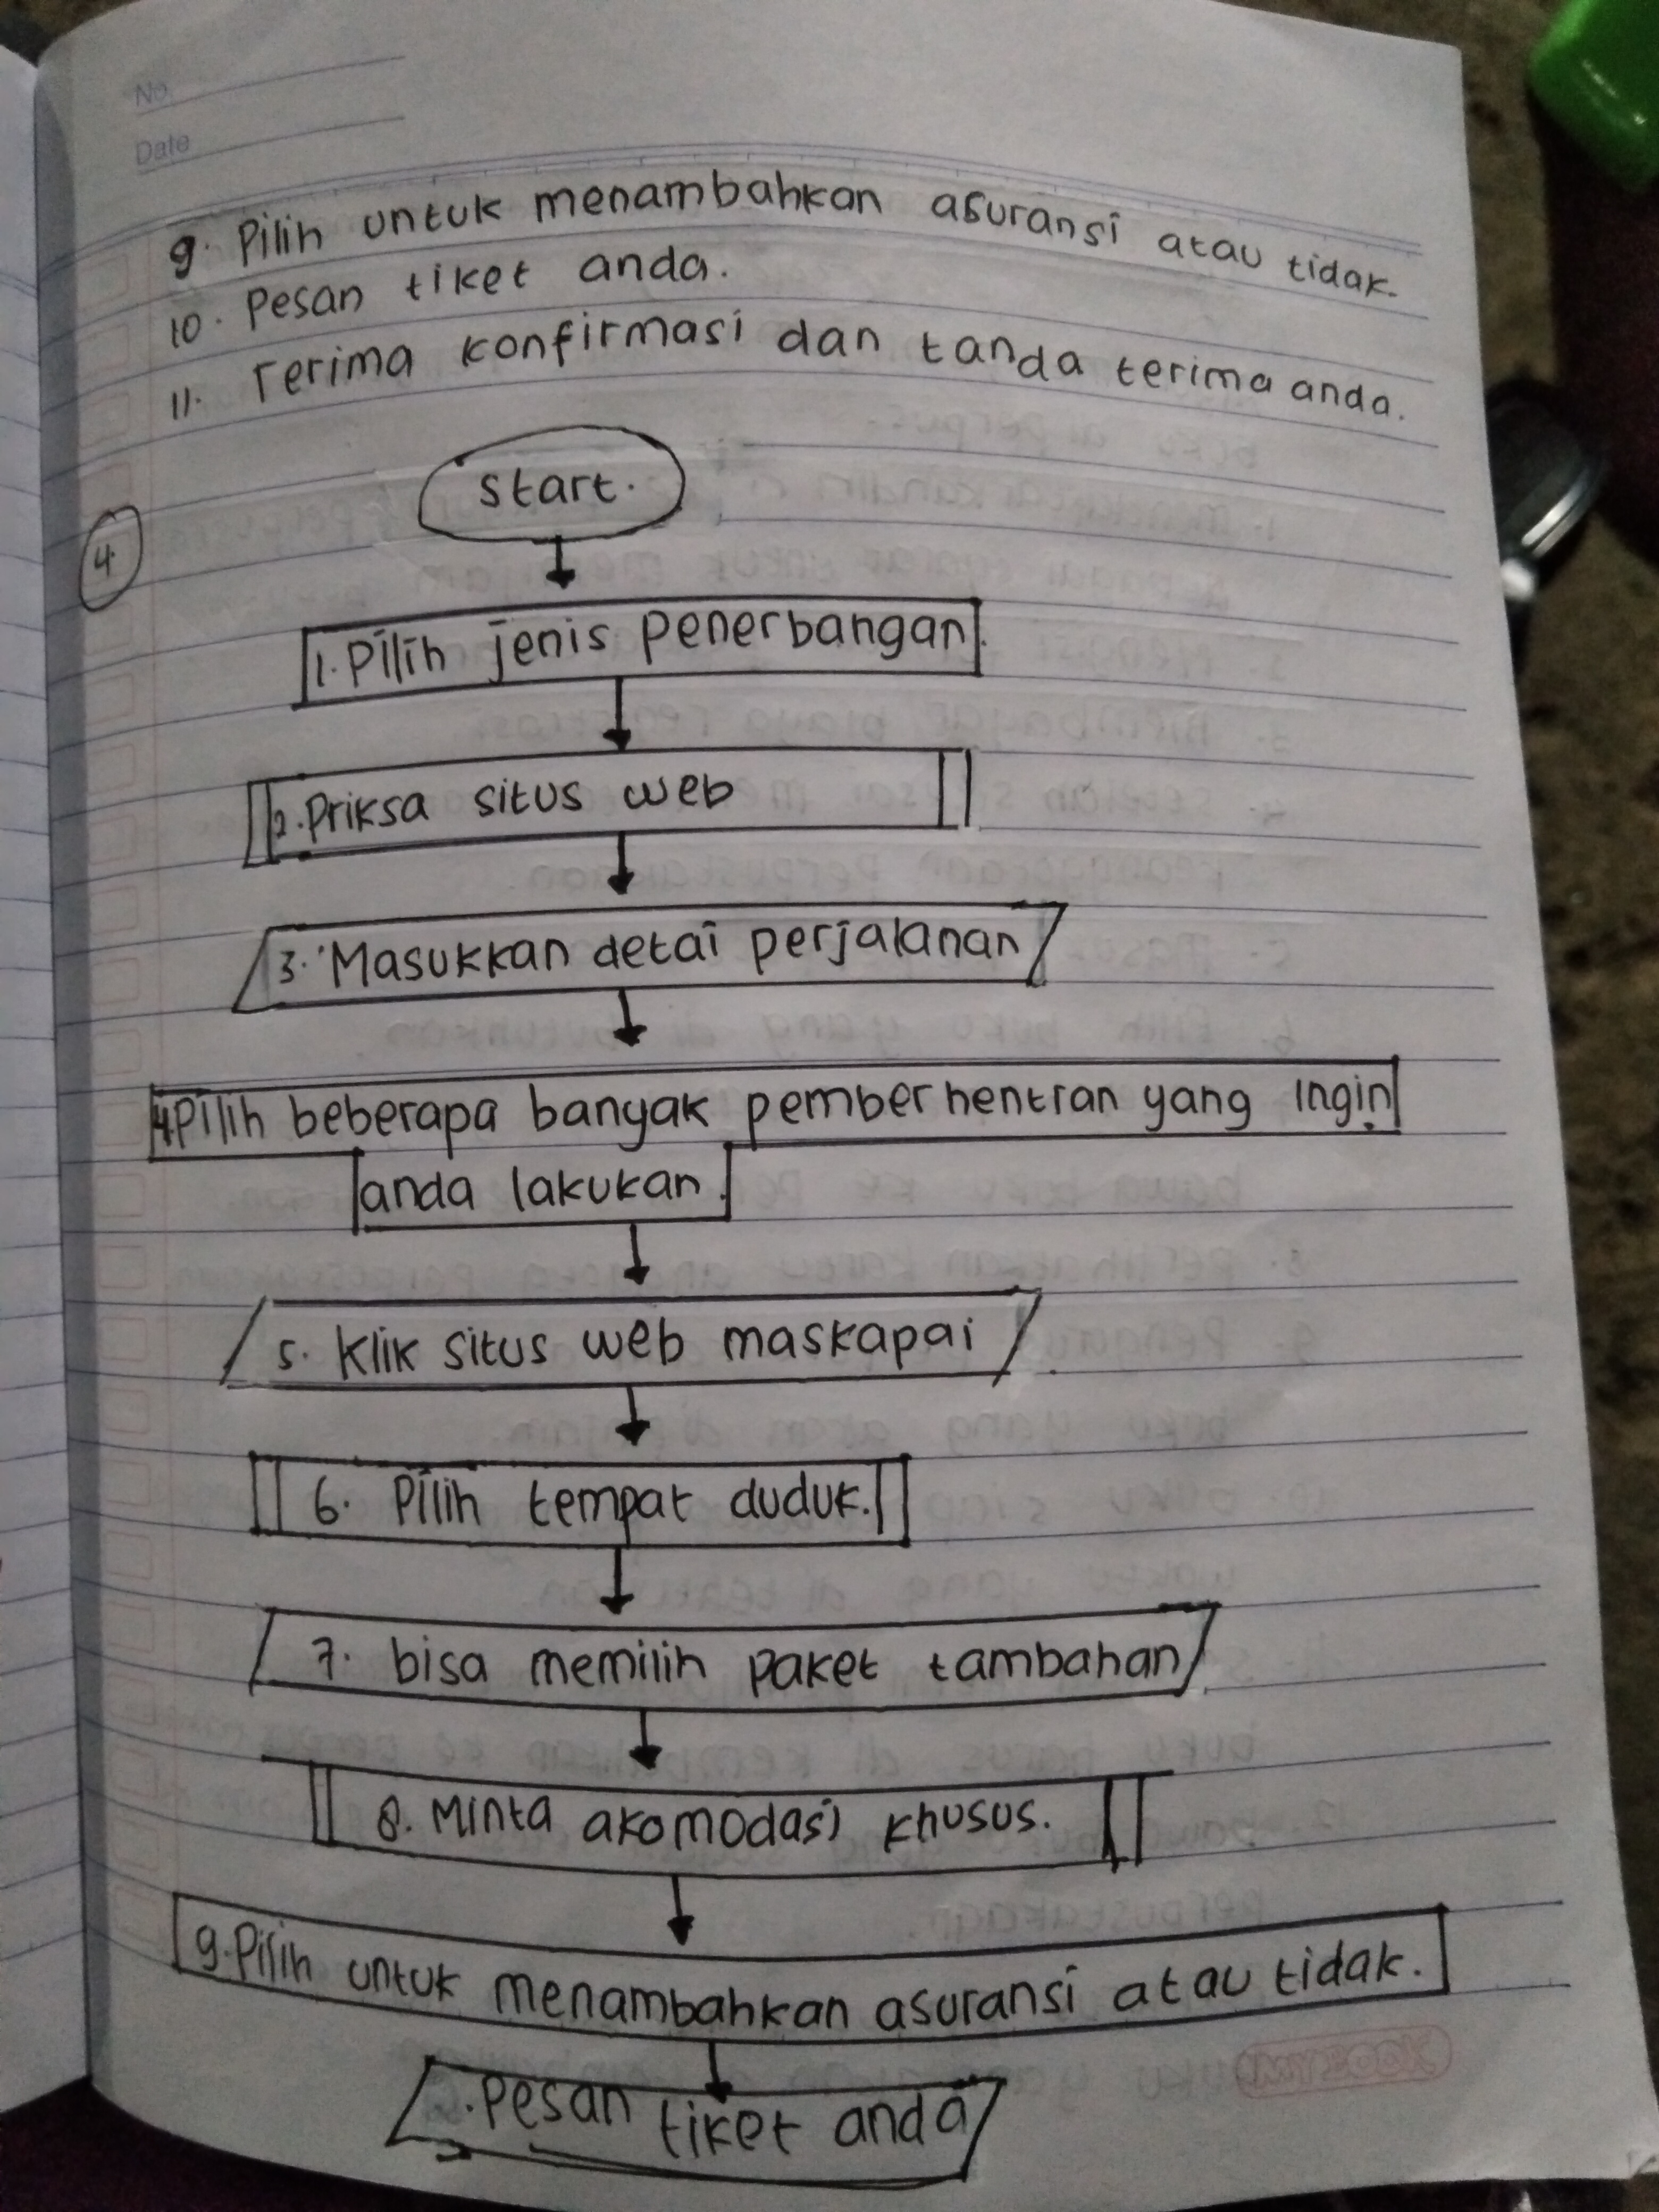 No.
Date
9. Pilih untuk menambahkan asuransi atau tidak.
10. Pesan tiket anda.
11. Terima konfirmasi dan tanda terima anda.
4.
Start.
1. Pilih jenis penerbangan.
2. Priksa situs web
3. Masukkan detai perjalanan
4 Pilih beberapa banyak pemberhentran yang ingin
anda lakukan.
5. Klik situs web maskapai
6. Pilih tempat duduk.
7. bisa memilih paket tambahan
8. Minta akomodasi khusus.
9. Pilih untuk menambahkan asuransi atau tidak.
. Pesan tiket anda
MYBOOK